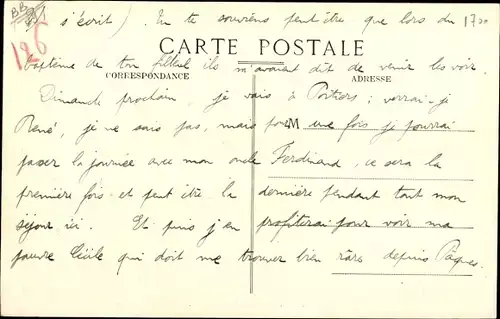 BB
126
s'écrit) . Tu te souviens peut être que lors du
CARTE POSTALE
baptême de ton filleul ils m'avaient dit de venir les voir.
CORRESPONDANCE
ADRESSE
Dimanche prochain, je vais à Poitiers ; verrai-je
René, je ne sais pas, mais pour une fois je pourrai
M
passer la journée avec mon oncle Ferdinand, ce sera la
première fois et peut être la dernière pendant tout mon
séjour ici. Et puis j'en profiterai pour voir ma
pauvre Cécile qui doit me trouver bien rare depuis Pâques.